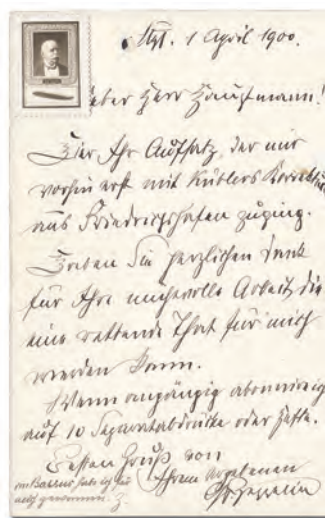 Stgt. 1 April 1900.
Lieber Herr Hauptmann!
Hier Ihr Aufsatz, der mir
vorhin erst mit Küblers Korrektur
aus Friedrichshafen zuging.
Haben Sie herzlichen Dank
für Ihre mühevolle Arbeit, die
eine rettende That für mich
werden kann.
Wenn angängig abonniere ich
auf 10 Separatabdrücke oder Hefte.
Besten Gruß von
Ihrem ergebenen
Gr. Zeppelin
habe ich
noch gewonnen. Z.